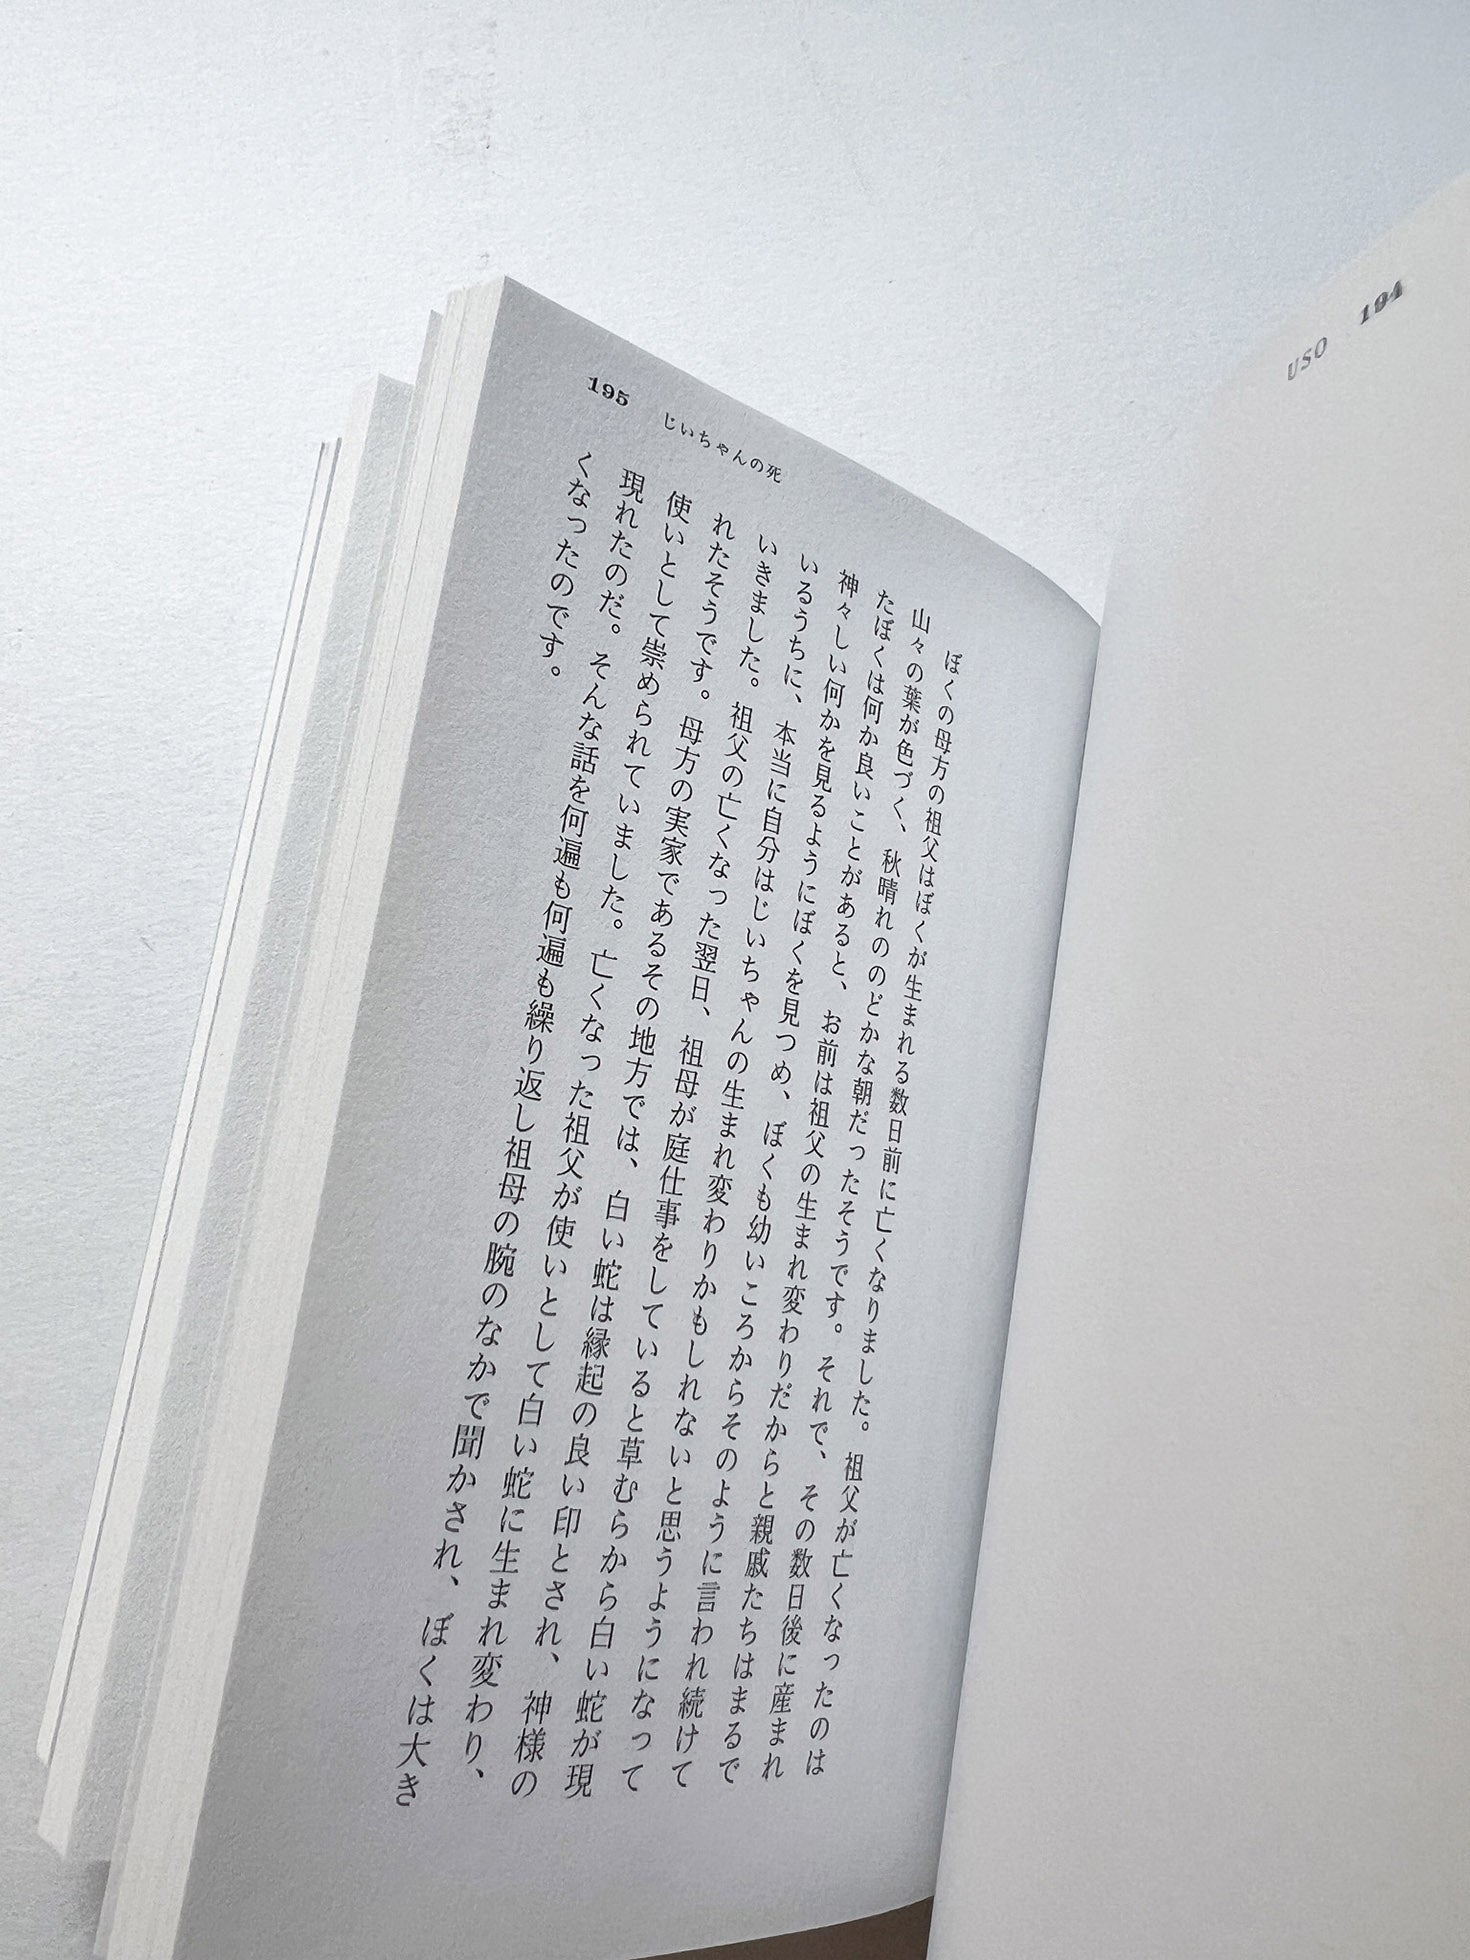 USO 194
195 じいちゃんの死
ぼくの母方の祖父はぼくが生まれる数日前に亡くなりました。祖父が亡くなったのは
山々の葉が色づく、秋晴れののどかな朝だったそうです。それで、その数日後に産まれ
たぼくは何か良いことがあると、お前は祖父の生まれ変わりだからと親戚たちはまるで
神々しい何かを見るようにぼくを見つめ、ぼくも幼いころからそのように言われ続けて
いるうちに、本当に自分はじいちゃんの生まれ変わりかもしれないと思うようになって
いきました。祖父の亡くなった翌日、祖母が庭仕事をしていると草むらから白い蛇が現
れたそうです。母方の実家であるその地方では、白い蛇は縁起の良い印とされ、神様の
使いとして崇められていました。亡くなった祖父が使いとして白い蛇に生まれ変わり、
現れたのだ。そんな話を何遍も何遍も繰り返し祖母の腕のなかで聞かされ、ぼくは大き
くなったのです。